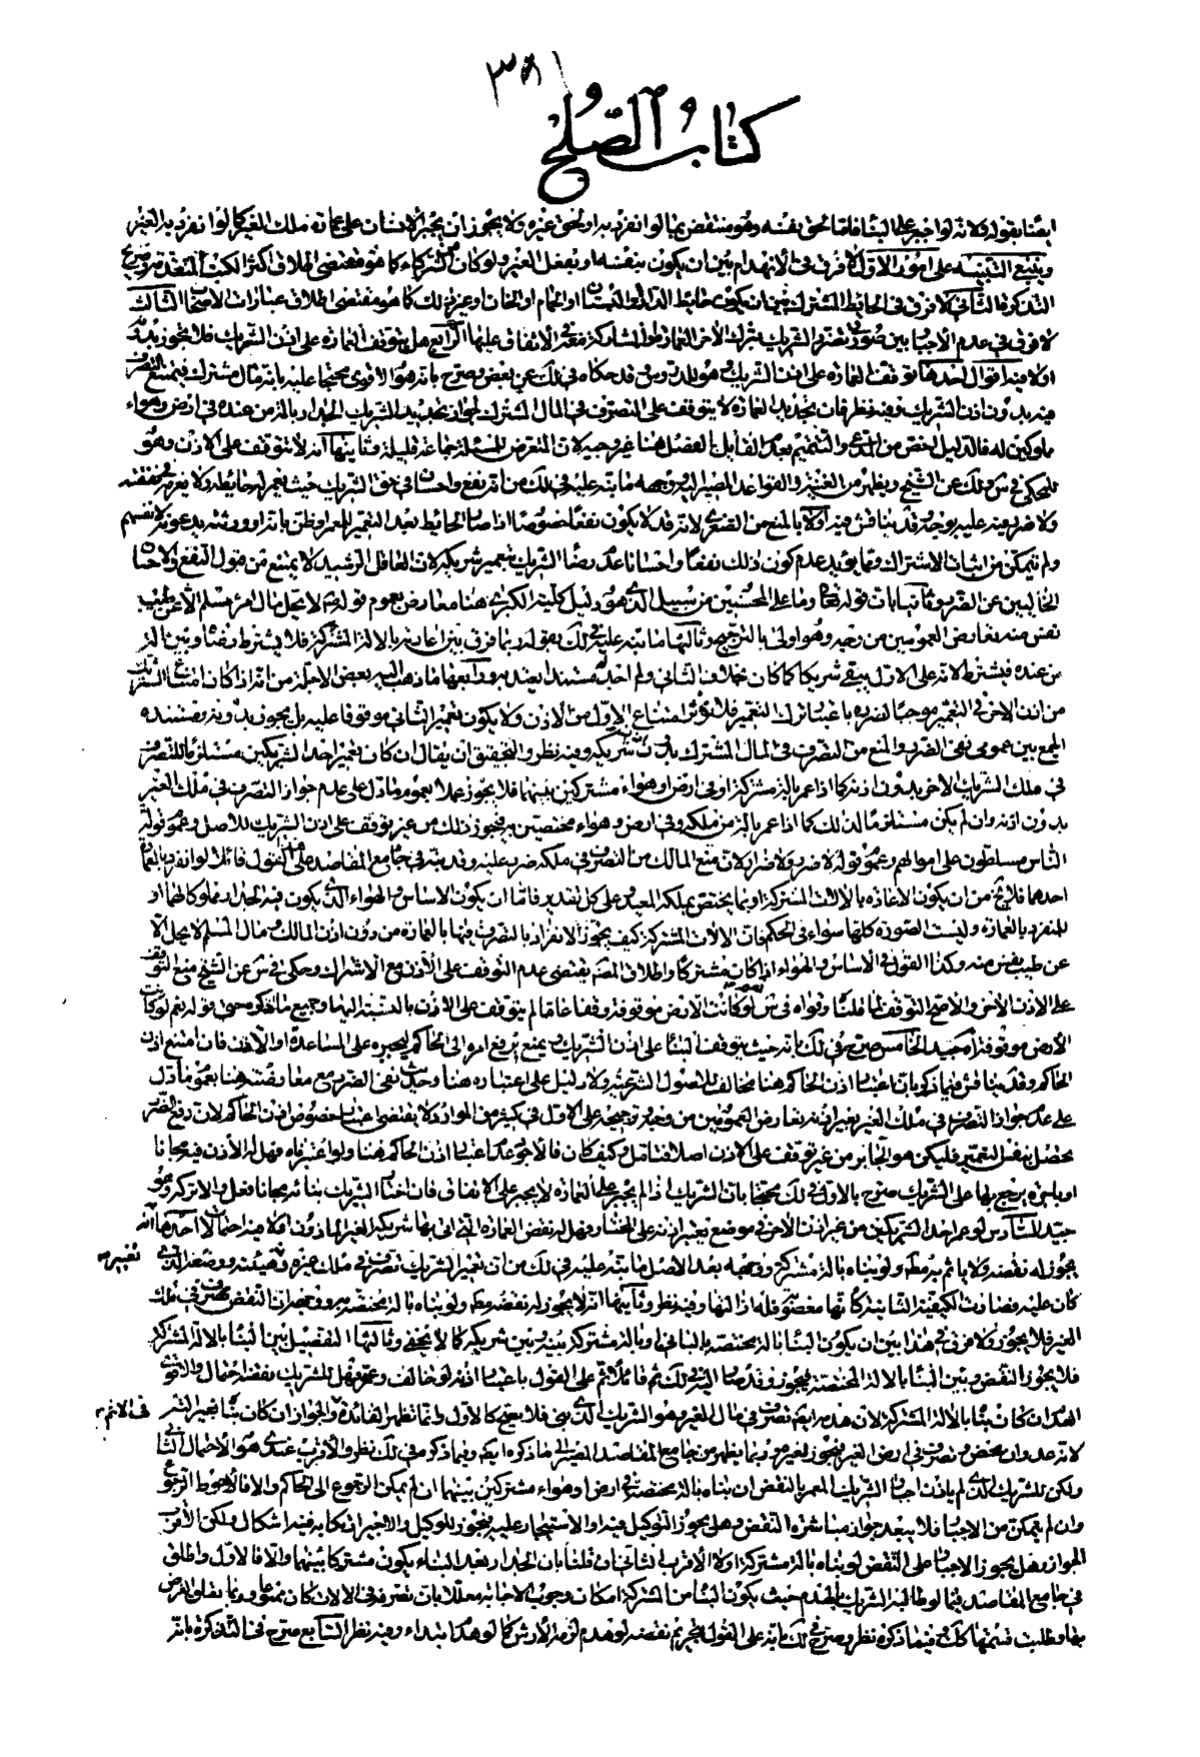 ٣٨١
كتاب الصلح
ايضا بقوله ولانه لو اجبر على البناء فاما لحق نفسه وهو منتقض بما لو انفرد به او لحق غيره ولا يجوز ان يجبر الانسان على عمارة ملك الغير كما لو انفرد به الغير
وينبغى التنبيه على امور الاول لا فرق فى الانهدام بين ان يكون بنفسه او بفعل الغير ولو كان كما هو مقتضى اطلاق اكثر الكتب المتقدمة
التذكرة الثانى لا فرق فى الحائط المشترك بين ان يكون حائط الدار او البستان او الحمام او الخان او غير ذلك كما هو مقتضى اطلاق عبارات الاصحاب الثالث
لا فرق فى عدم الاجبار بين صورتى تضرر الشريك بترك الاخر العمارة الرابع هل يتوقف العمارة على اذن الشريك فلا يجوز بدونه
اولا فيه اقوال احدها توقف العمارة على اذن الشريك وهو للدروس قد حكاه فى لك عن بعض وصرح بانه هو الاقوى محتجا عليه بانه مال مشترك فيمتنع التصرف
فيه بدون اذن الشريك وفيه نظر فان تجديد العمارة لا يتوقف على التصرف فى المال المشترك لجواز تجديد الشريك الجدار بالة من عنده فى ارض وهواء
مملوكين له فالدليل اخص من المدعى والتتميم بعدم القائل بالفصل هنا غير وجيه لان المتعرض للمسئلة جماعة قليلة وثانيها انه لا يتوقف على الاذن وهو
للمحكى فى عن الشيخ ويظهر من وجهه ما نبه عليه فى لك من انه نفع واحسان فى حق الشريك حيث يعمر له حائطه ولا يغرمه فى نفقته
ولا ضرر فيه عليه بوجه وقد يناقش فيه اولا بالمنع من الصغرى لانه قد لا يكون نفعا خصوصا اذا صار الحائط بعد التعمير
ولم يتمكن من اثبات الاشتراك ومما يؤيد عدم كون ذلك نفعا واحسانا عدم رضاء الشريك بتعمير شريكه لان العاقل الرشيد لا يمتنع من قبول النفع والاحسان
الخاليين عن الضرر وثانيا بان قوله تعالى وما على المحسنين من سبيل الذى هو دليل كلية الكبرى هنا معارض بعموم قوله لا يحل مال امرء مسلم الا عن طيب
نفس منه تعارض العمومين من وجه وهو اولى بالترجيح وثالثها ما نبه عليه فى لك بقوله ربما فرق بين اعادته بالالة المشتركة فلا يشترط رضاه وبين الة
من عنده فيشترط لانه على الاول يبقى شريكا كما كان بخلاف الثانى ولم اجد له مستندا يعتد به ورابعها ما ذهب اليه بعض الاجلة من انه اذا كان امتناع الشريك
من اذن الاخر فى التعمير موجبا لضرره باعتبار ترك التعمير فلا يؤثر امتناع الاول من الاذن ولا يكون تعمير الثانى موقوفا عليه بل يجوز بدونه ومستنده
الجمع بين عمومى نفى الضرر والمنع من التصرف فى المال المشترك بدون اذن شريكه وفيه نظر والتحقيق ان يقال ان كان تعمير احد الشريكين مستلزما للتصرف
فى ملك الشريك الاخر بدون اذنه كما اذا عمر بالة مشتركة او فى ارض او هواء مشتركين بينهما فلا يجوز عملا بعموم ما دل على عدم جواز التصرف فى ملك الغير
بدون اذنه وان لم يكن مستلزما لذلك كما اذا عمر بالة من ملكه وفى ارض وهواء مختصتين به فيجوز ذلك من غير توقف على اذن الشريك للاصل وعموم قوله
الناس مسلطون على اموالهم وعموم قوله لا ضرر ولا ضرار لان منع المالك من التصرف فى ملكه ضرر عليه وقد نبه فى جامع المقاصد على هذا القول قائلا لو انفرد بالعمارة
احدهما فلا يخ من ان يكون الاعادة بالالات المشتركة او بما يختص بملكه المعيد وعلى كل تقدير فاما ان يكون الاساس والهواء الذى يكون فيه الجدار مملوكا لهما او
للمنفرد بالعمارة وليست الصورة كلها سواء فى الحكم فان الالات المشتركة كيف يجوز الانفراد بالتصرف فيها بالعمارة من دون اذن المالك ومال المسلم لا يحل الا
عن طيب نفس منه وكذا القول فى الاساس والهواء اذا كان مشتركا واطلاق المصنف يقتضى عدم التوقف على الاذن مع الاشتراك وحكى فى س عن الشيخ منع التوقف
على الاذن الاخر والاصح التوقف لما قلنا وقواه فى س نعم لو كانت الارض موقوفة وقفا عاما لم يتوقف على الاذن بالنسبة اليها وجميع ما ذكره صحيح قوله نعم لو كانت
الارض موقوفة الخ جيد الخامس صرح فى لك بانه حيث يتوقف البناء على اذن الشريك ويمتنع يرفع امره الى الحاكم ليجبره على المساعدة او الاذن فان امتنع اذن
الحاكم وقد يناقش فيما ذكره بان اعتبار اذن الحاكم هنا مخالف للاصول الشرعية ولا دليل على اعتباره هنا وحديث نفى الضرر مع معارضته هنا بعموم ما دل
على عدم جواز التصرف فى ملك الغير بغير اذنه تعارض العمومين من وجه وترجيحه على الاول فى كثير من الموارد لا يقتضى اعتبار خصوص اذن الحاكم لان دفع الضرر
يحصل بنفس التعمير فليكن هو الجابر من غير توقف على الاذن اصلا فتامل وكيف كان فالاحوط مراعاة اذن الحاكم هنا ولو اعتبرناه فهل له الاذن فيه مجانا
او باجرة يرجع بها على الشريك صرح بالاول فى لك محتجا بان الشريك اذا لم يجبر على العمارة لا يجبر على الانفاق فان اختار الشريك بنائه مجانا فعل والا تركه وهو
جيد السادس لو عمر احد الشريكين من غير اذن الاخر فى موضع يعتبر اذنه على المختار فهل له نقض العمارة التى اتى بها شريكه الغير الماذون اولا فيه احتمالات احدها انه
يجوز له نقضه ولا ياثم به مطلقا ولو بناه بالة مشتركة ووجهه بعد الاصل ما نبه عليه فى لك من ان تغيير الشريك تصرف فى ملك غيره وهيئته ووضعه الذى تغييره
كان عليه فصارت الكيفية الثانية كانها مغصوبة فله ازالتها وفيه نظر وثانيها انه لا يجوز له نقضه مطلقا ولو بناه بالة مختصة به ووجهه ان النقض تصرف فى ملك
الغير فلا يجوز ولا فرق فى هذا بين ان يكون البناء بالة مختصة بالبانى او بالة مشتركة بينه وبين شريكه كما لا يخفى وثالثها التفصيل بين البناء بالالة المشتركة
فلا يجوز النقض وبين البناء بالالة المختصة فيجوز وقد صار اليه فى لك ثم قائلا ثم على القول باعتبار اذنه لو خالف وعمر فهل للشريك نقضه احتمال والاقوى
العدم ان كان بناه بالالة المشتركة لان هدمه ايضا تصرف فى مال الغير وهو الشريك الذى بنى فلا يصح كالاول وانما تظهر الفائدة فى الاثم والجواز ان كان بناه بغير المشترك
لانه عدوان محض وتصرف فى ارض الغير فيجوز تغييره وربما يظهر من جامع المقاصد المصير الى ما ذكره ايضا وفيما ذكره فى لك نظر والاقرب عندى هو الاحتمال الثانى
ولكن للشريك الذى لم ياذن اجبار الشريك المعمر بالنقض ان بناه بالة مختصة فى ارض او هواء مشتركين بينهما ان لم يمكن الرجوع الى الحاكم والا فالاحوط الرجوع
وان لم يتمكن من الاجبار فلا يبعد جواز مباشرة النقض وهل يجوز التوكيل فيه او الاستيجار عليه فيجوز للوكيل والاجير ارتكابه فيه اشكال ولكن الاقرب
الجواز وهل يجوز الاجبار على النقض لو بناه بالة مشتركة اولا الاقرب الثانى ان قلنا بان الجدار بعد البناء يكون مشتركا بينهما والا فالاول واطلق
فى جامع المقاصد فيما لو طالبه الشريك بالهدم حيث يكون البناء من المشتركة امكان وجوب الاجابة معللا بان تصرفه فى الالات كان ممنوعا
بقاء وطلبت قسمتها كك وفيما ذكره نظر وصرح فى لك بانه على القول بتحريم نقضه لو هدم لزمه الارش كما لو هدم ابتداء وفيه نظر السابع صرح فى التذكرة بانه